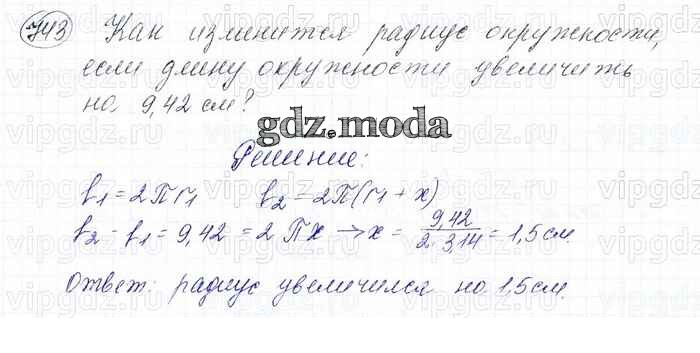 743 Как изменится радиус окружности,
если длину окружности увеличить
на 9,42 см?
gdz.moda
Решение:
l₁ = 2πr₁ l₂ = 2π(r₁ + x)
l₂ - l₁ = 9,42 = 2πx → x = 9,42 / 2·3,14 = 1,5 см.
Ответ: радиус увеличился на 1,5 см.
vipgdz.ru